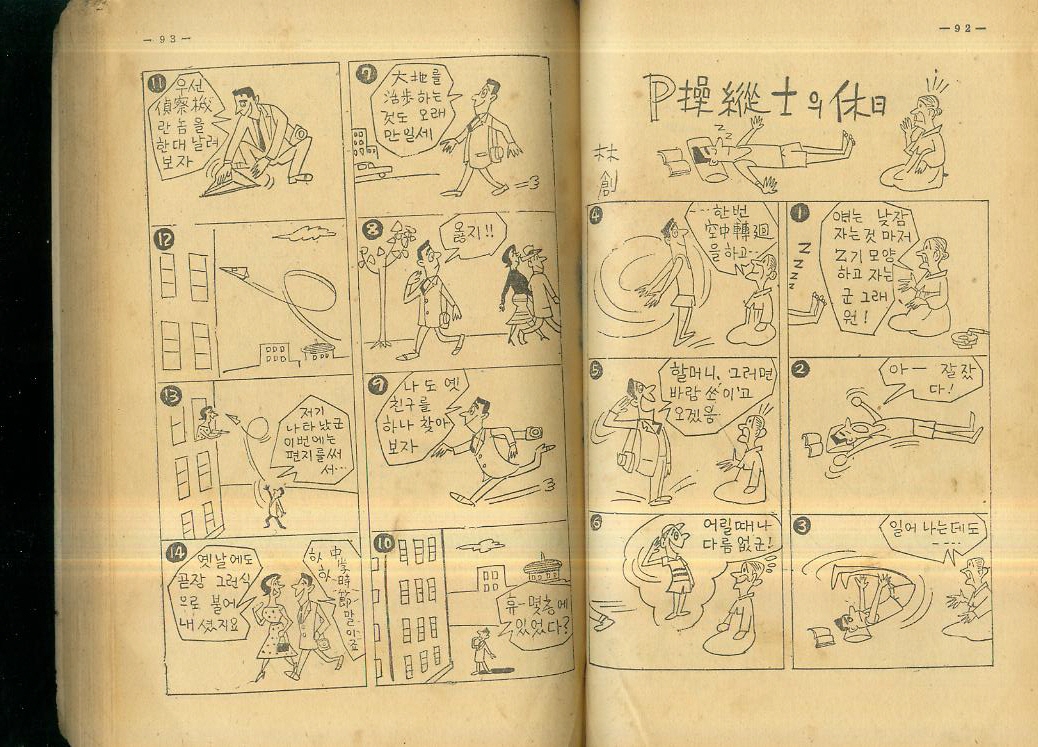 —92—
P操縱士의 休日
林
創
얘는 낮잠
자는것 마저
Z기 모양
하고 자는
군 그래
원!
Z
Z
Z
Z
아— 잘잤
다!
일어 나는데도
----
---한번
空中轉廻
을 하고--
할머니, 그러면
바람 쏘이고
오겠음
어릴때나
다름 없군!
—93—
大地를
活步하는
것도 오래
만일세!
옳지!!
나도 옛
친구를
하나 찾아
보자
몇층에
있었다?
우선
偵察機
란 놈을
한대 날려
보자
저기
나타났군
이번에는
편지를 써
서...
옛날에도
곧장 그런식
으로 불어
내셨지요
하하
中學時節말이죠